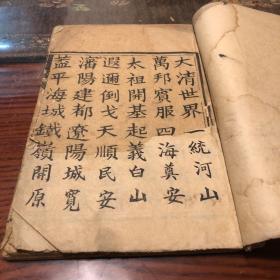 大清世界一統河山
萬邦賓服四海奠安
太祖開基起義白山
遐邇倒戈天順民安
瀋陽建都遼陽城寬
蓋平海城鐵嶺開原